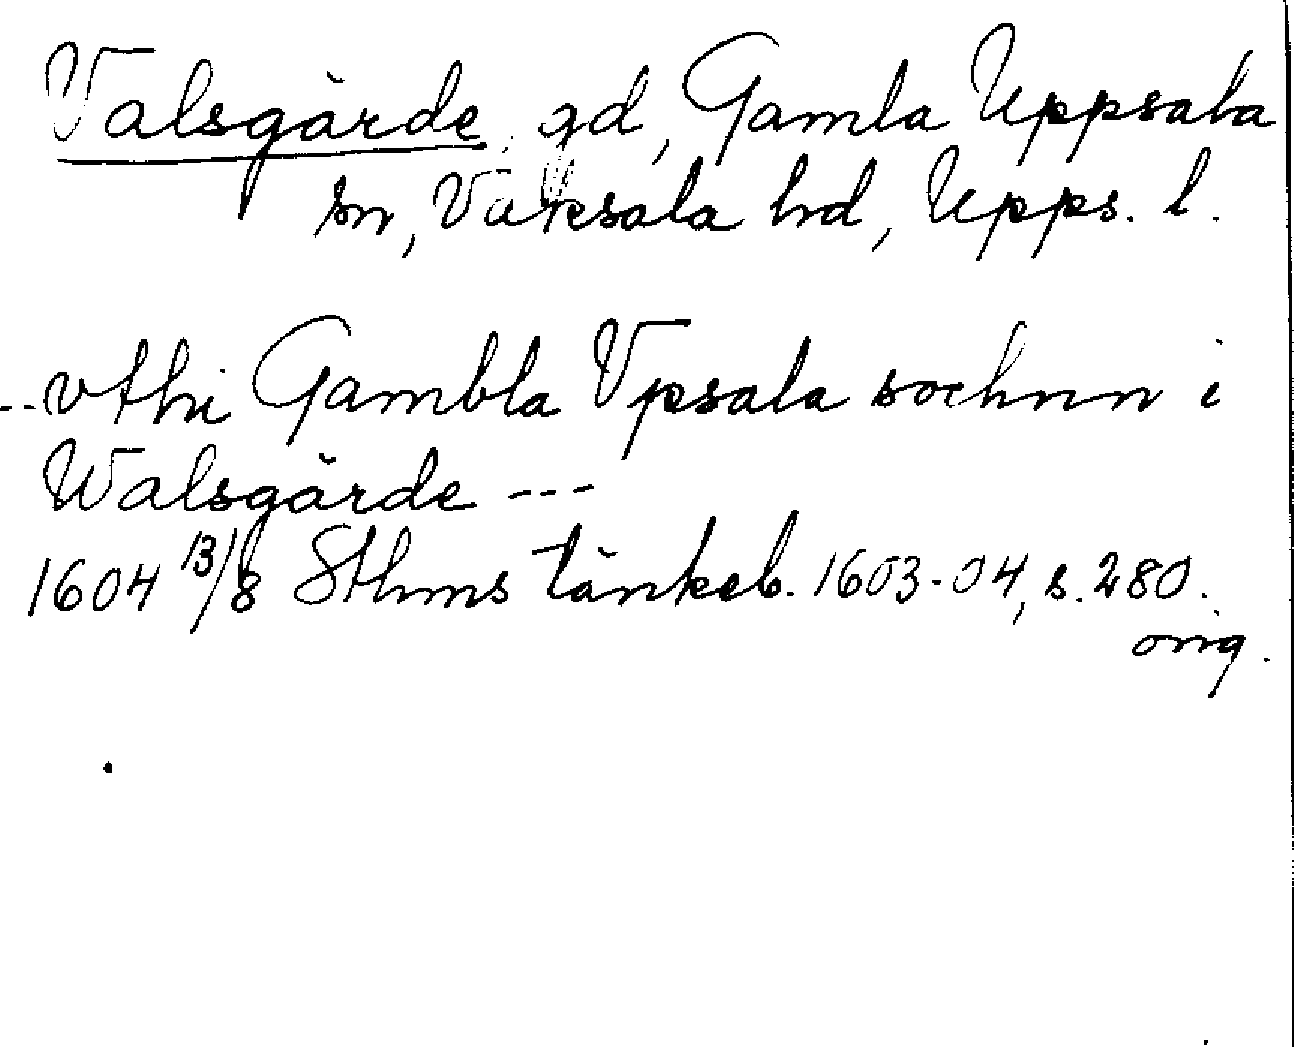 Valsgärde, gd, Gamla Uppsala
sn, Vaksala hd, Upps. l.
--vthi Gambla Vpsala sochnn i
Walsgärde ---
1604 13/8 Sthms tänkeb. 1603-04, s. 280.
orig.